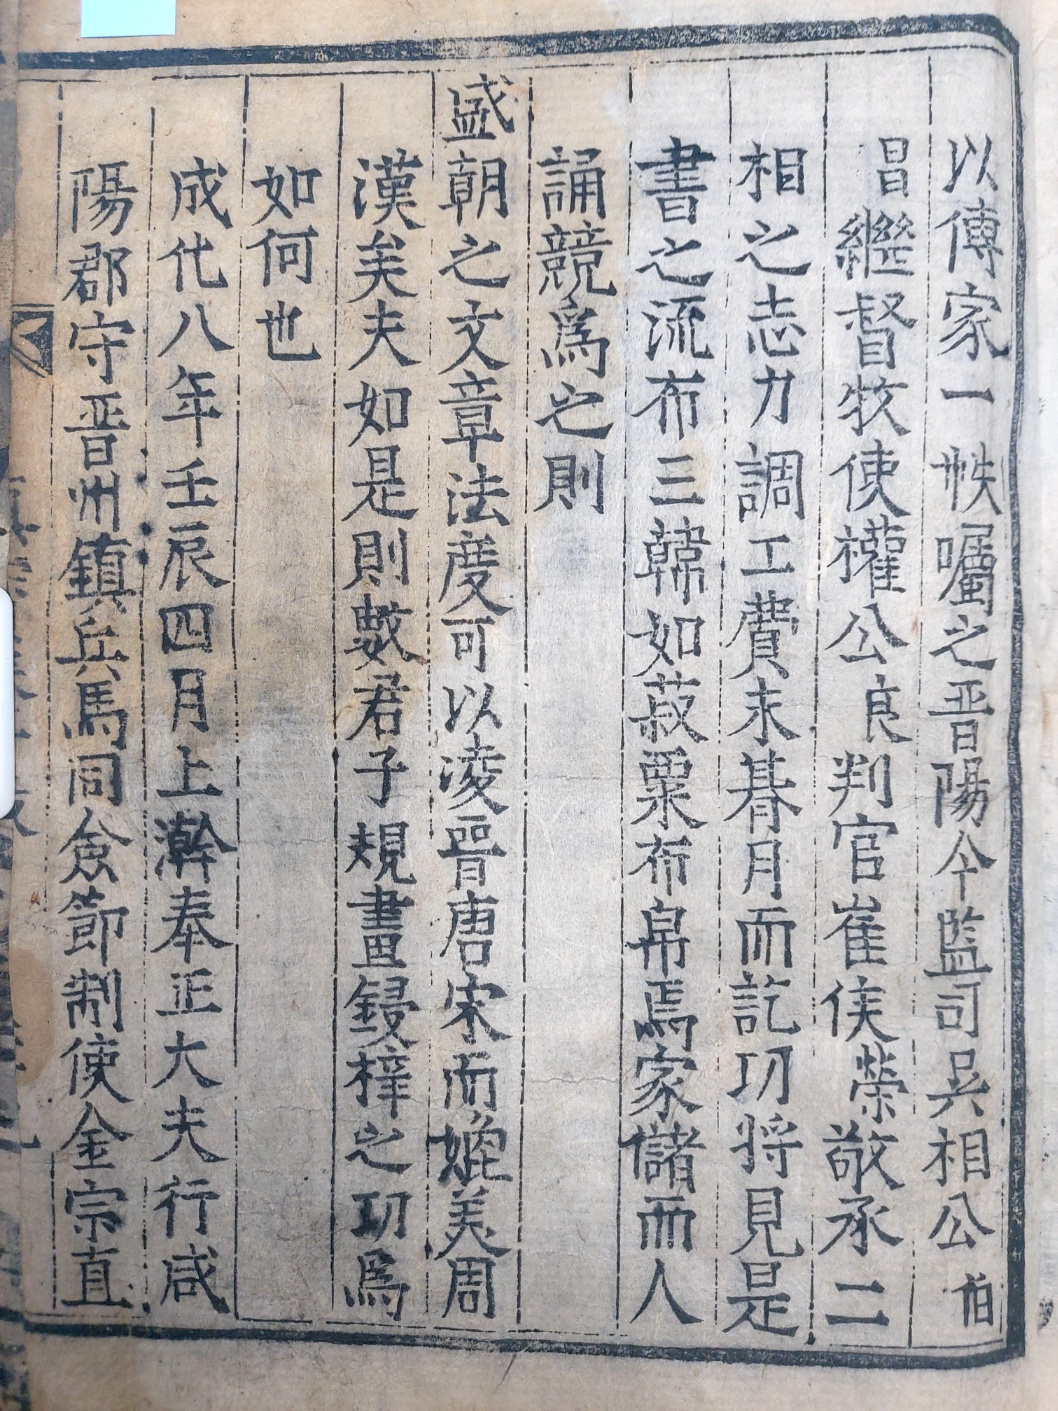 以傳家一帙囑之晋陽今監司吳相公伯
昌繼督牧使權公良判官崔侯榮敬承二
相之志力調工費未朞月而訖功將見是
書之流布三韓如菽粟布帛焉家儲而人
誦競爲之則
盛朝之文章法度可以凌晉唐宋而媲美周
漢矣夫如是則數君子規畫鋟梓之功爲
如何也
成化八年壬辰四月上澣奉正大夫行咸
陽郡守晋州鎮兵馬同僉節制使金宗直